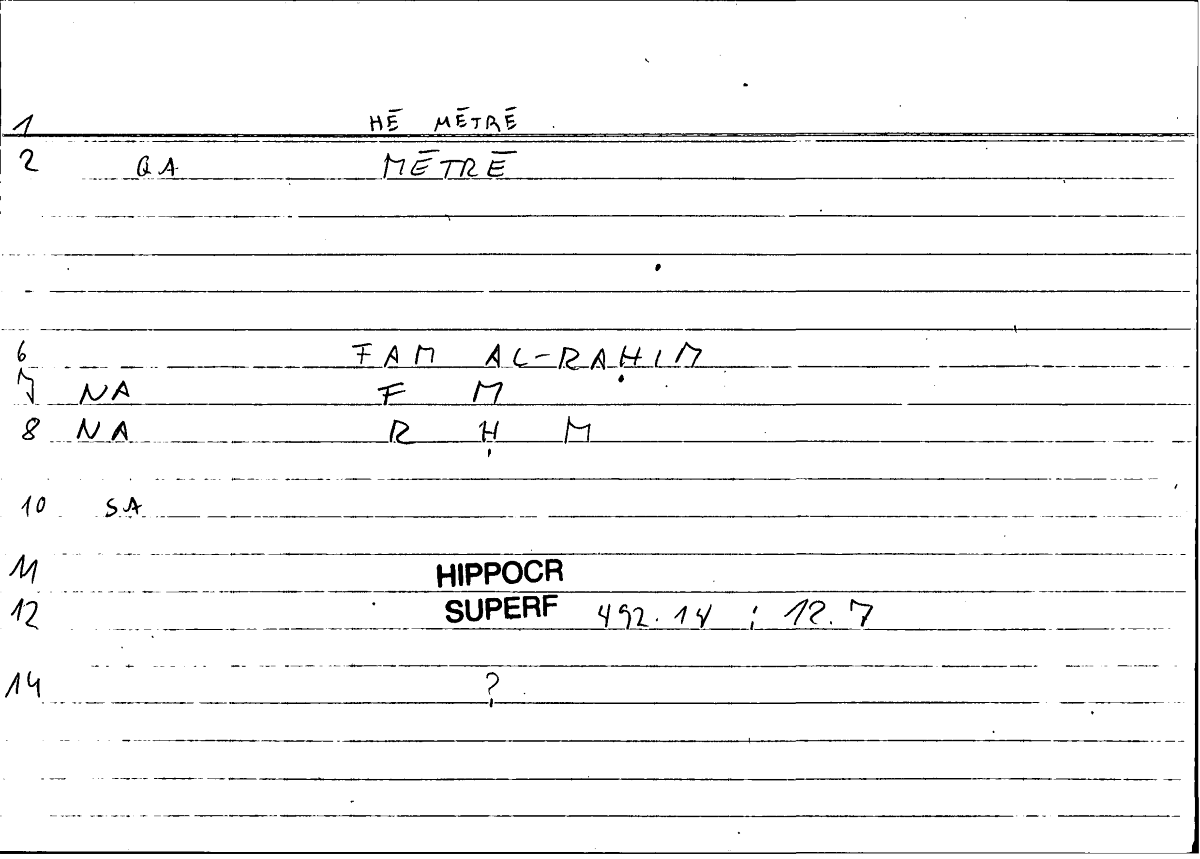 1 HĒ MĒTRĒ
2 QA MĒTRĒ
6 FAM AL-RAḤIM
7 NA F M
8 NA R Ḥ M
10 SA
11 HIPPOCR
12 SUPERF 492.14 ; 12.7
14 ?